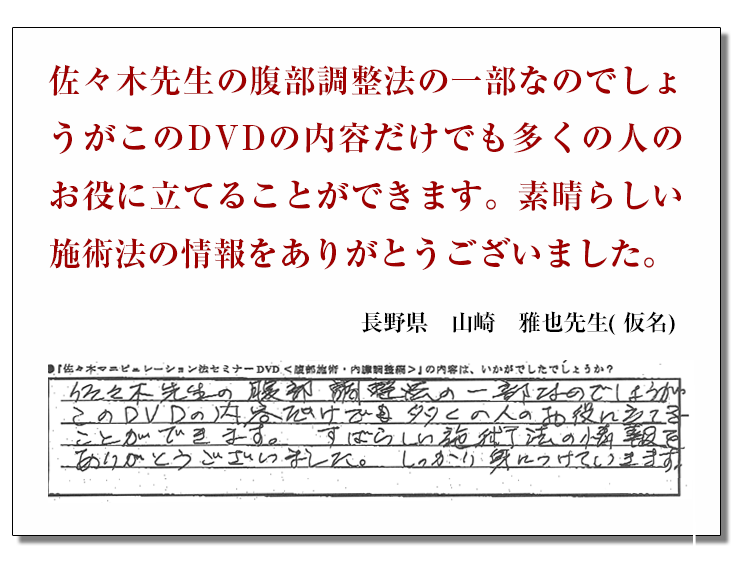 佐々木先生の腹部調整法の一部なのでしょ
うがこのDVDの内容だけでも多くの人の
お役に立てることができます。素晴らしい
施術法の情報をありがとうございました。
長野県 山崎 雅也先生( 仮名)
●『佐々木マニピュレーション法セミナーDVD<腹部施術・内臓調整編>』の内容は、いかがでしたでしょうか?
佐々木先生の腹部調整法の一部なのでしょうが
このDVDの内容だけでも多くの人のお役に立てる
ことができます。 すばらしい施術法の情報を
ありがとうございました。 しっかり身につけていきます。